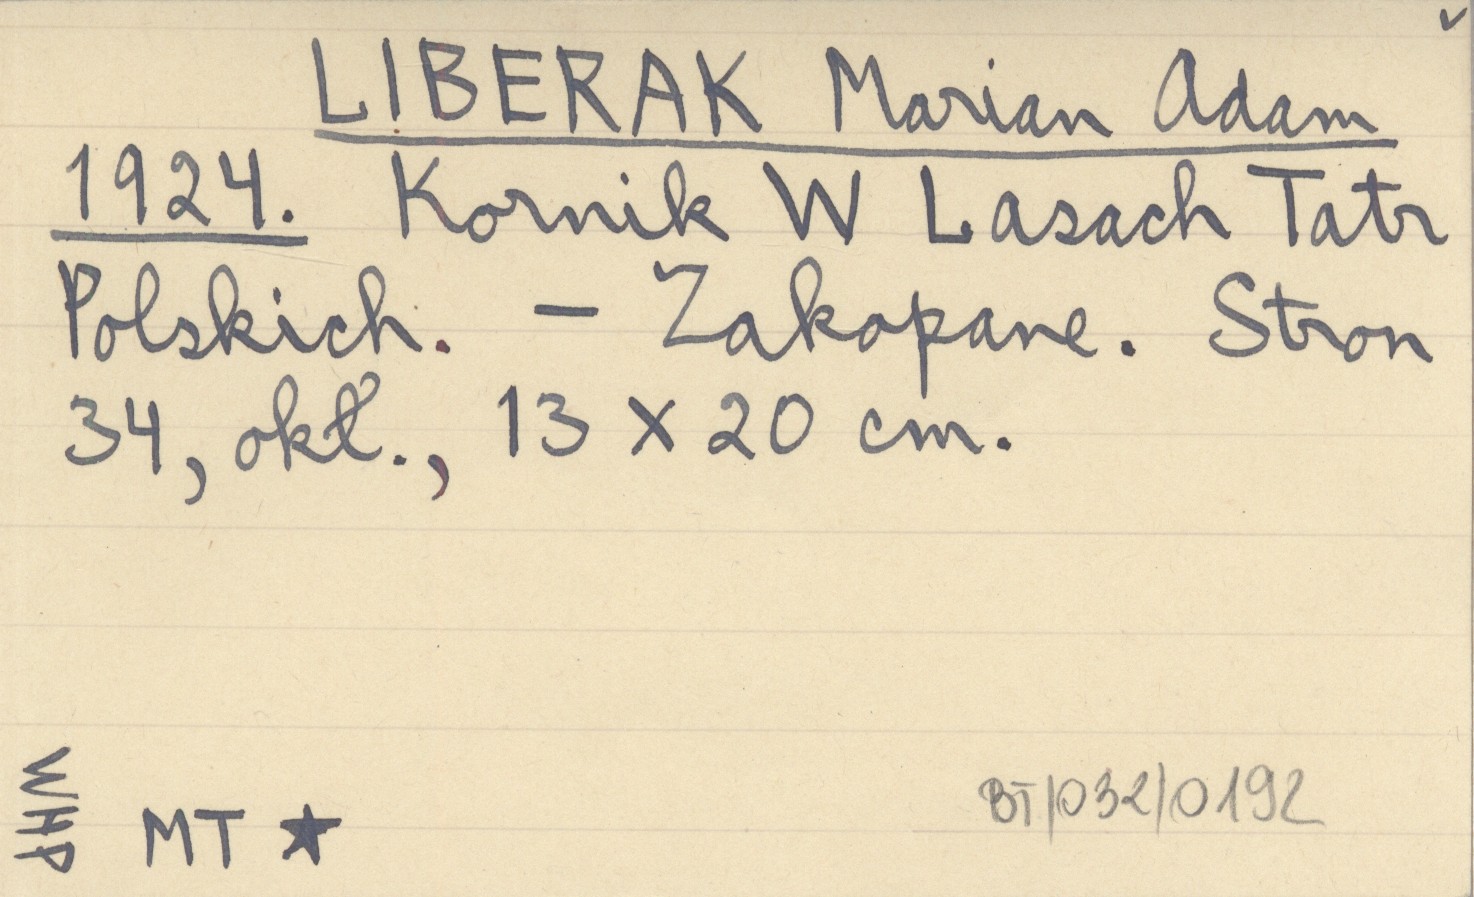 ✓
LIBERAK Marian Adam
1924. Kornik W Lasach Tatr
Polskich. – Zakopane. Stron
34, okł., 13 x 20 cm.
WHP
MT ★
BT/032/0192